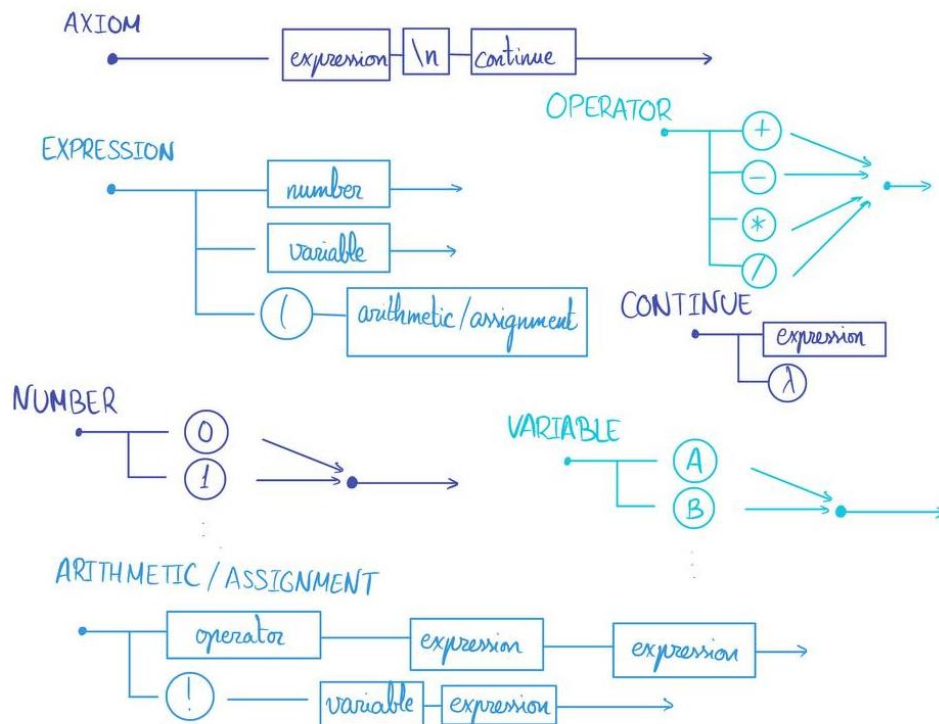 AXIOM
expression \n continue
OPERATOR
+
-
*
/
EXPRESSION
number
variable
( arithmetic/assignment
CONTINUE
expression
λ
NUMBER
0
1
VARIABLE
A
B
ARITHMETIC / ASSIGNMENT
operator expression expression
! variable expression